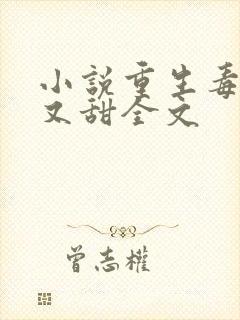 小說重生毒
又甜全文
曾志權